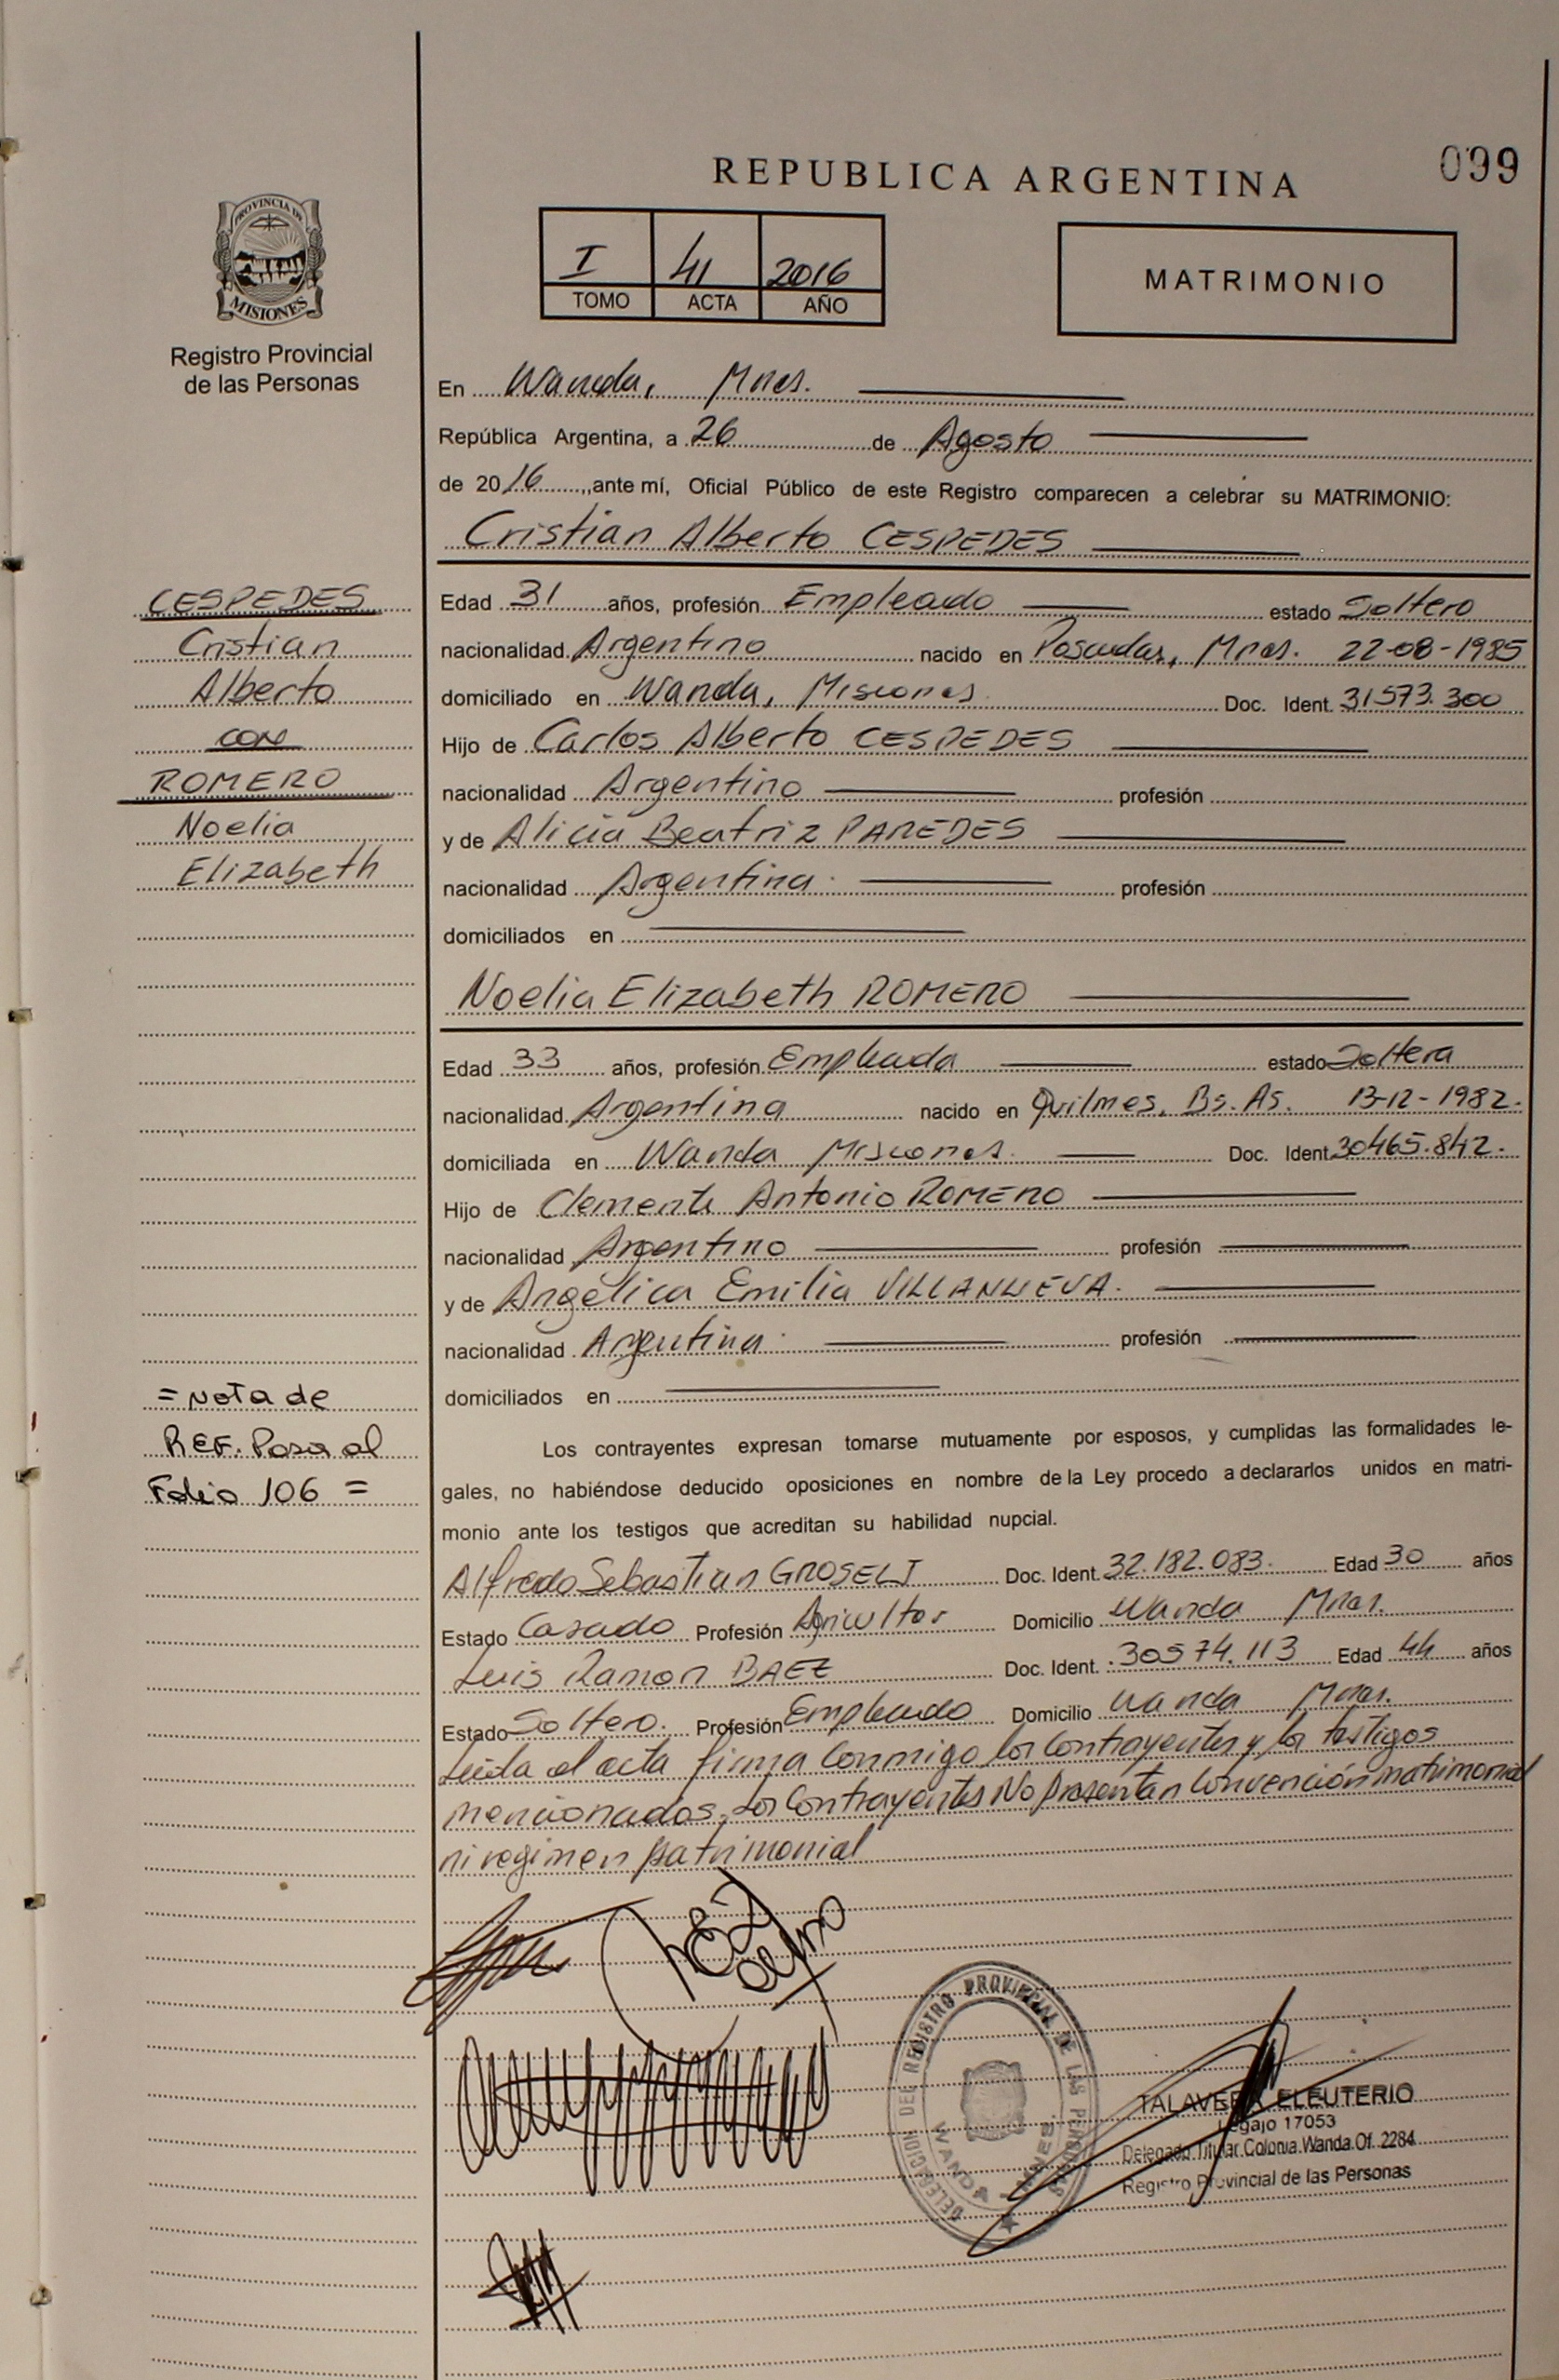 REPUBLICA ARGENTINA
099
PROVINCIA DE
MISIONES
Registro Provincial
de las Personas
I 41 2016
TOMO ACTA AÑO
MATRIMONIO
En Wanda, Mnes.
República Argentina, a 26 de Agosto
de 2016, ante mí, Oficial Público de este Registro comparecen a celebrar su MATRIMONIO:
Cristian Alberto CESPEDES
CESPEDES
Cristian
Alberto
con
ROMERO
Noelia
Elizabeth
Edad 31 años, profesión Empleado estado Soltero
nacionalidad Argentino nacido en Posadas, Mnes. 22-08-1985
domiciliado en Wanda, Misiones Doc. Ident. 31573.300
Hijo de Carlos Alberto CESPEDES
nacionalidad Argentino profesión
y de Alicia Beatriz PAREDES
nacionalidad Argentina profesión
domiciliados en
Noelia Elizabeth ROMERO
Edad 33 años, profesión Empleada estado Soltera
nacionalidad Argentina nacido en Quilmes, Bs. As. 13-12-1982.
domiciliada en Wanda Misiones. Doc. Ident 30465.842.
Hijo de Clemente Antonio ROMERO
nacionalidad Argentino profesión
y de Angélica Emilia VILLANUEVA.
nacionalidad Argentina profesión
domiciliados en
= Nota de
REF. Pasa al
Folio 106 =
Los contrayentes expresan tomarse mutuamente por esposos, y cumplidas las formalidades le-
gales, no habiéndose deducido oposiciones en nombre de la Ley procedo a declararlos unidos en matri-
monio ante los testigos que acreditan su habilidad nupcial.
Alfredo Sebastian GROSELJ Doc. Ident. 32.182.083. Edad 30 años
Estado Casado Profesión Agricultor Domicilio Wanda Mnes.
Luis Ramon BAEZ Doc. Ident. 30574.113 Edad 44 años
Estado Soltero. Profesión Empleado Domicilio Wanda Mnes.
Leida el acta firma conmigo los contrayentes y los testigos
mencionados. Los Contrayentes No presentan Convención matrimonial
ni regimen patrimonial
DELEGACION DEL REGISTRO PROVINCIAL DE LAS PERSONAS
WANDA
TALAVERA ELEUTERIO
Legajo 17053
Delegado Titular Colonia Wanda Of. 2284
Registro Provincial de las Personas